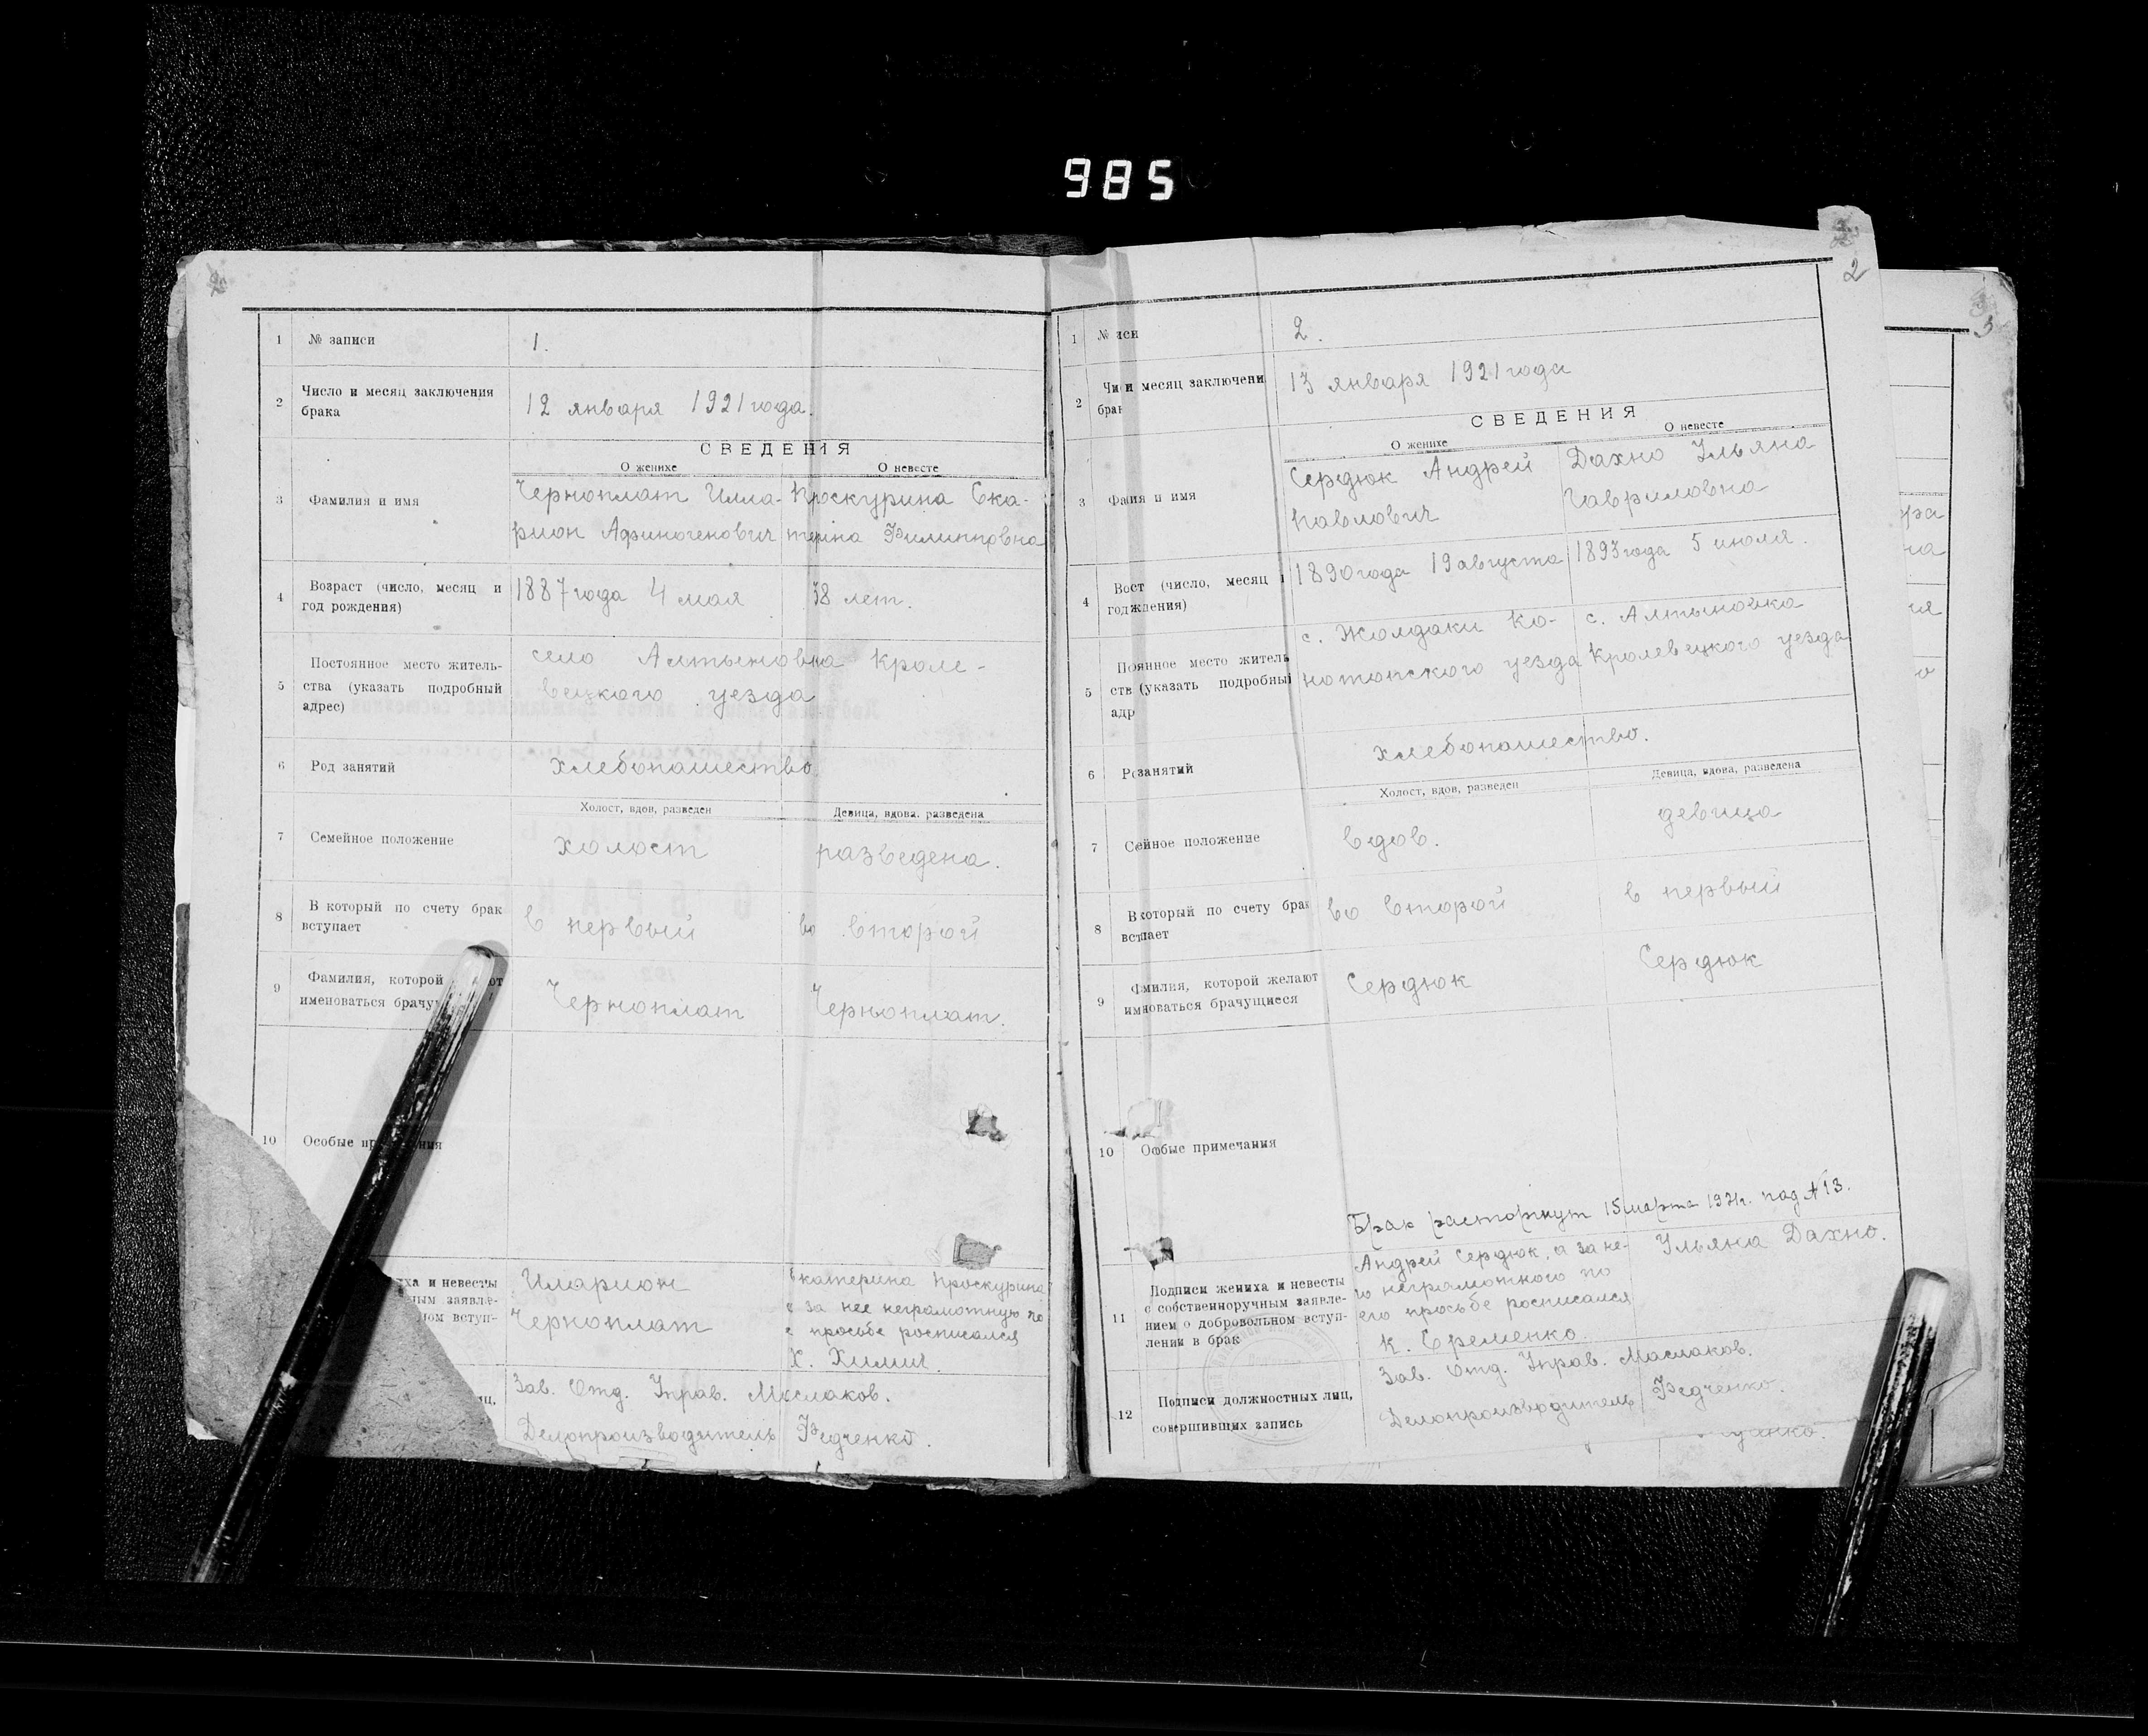 985
1 № записи 1.
2 Число и месяц заключения
брака
12 января 1921 года.
СВЕДЕНИЯ
О женихе О невесте
3 Фамилия и имя
Черноплат Илла- Проскурина Ека-
рион Афиногенович теріна Филипповна
4 Возраст (число, месяц и
год рождения)
1887 года 4 мая 38 лет.
5 Постоянное место житель-
ства (указать подробный
адрес)
село Алтыновка Кроле-
вецкого уезда
6 Род занятий хлебопашество
Холост, вдов, разведен Девица, вдова, разведена
7 Семейное положение холост разведена.
8 В который по счету брак
вступает
в первый во второй
9 Фамилия, которой
именоваться брачу
Черноплат Черноплат.
10 Особые
ха и невесты
ным заявле-
ном вступ-
Иларион
Черноплат
Екатерина Проскурина
за нее неграмотную по
просьбе росписался
Х. Химич.
Зав. Отд. Управ. Маслаков.
Делопроизводитель Федченко.
2
1 № иси 2.
2 Чи и месяц заключени
брак
13 января 1921 года
СВЕДЕНИЯ
О женихе О невесте
3 Фаия и имя
Сердюк Андрей Дахно Ульяна
Павлович Гавриловна
4 Вост (число, месяц и
годждения)
1890 года 19 августа 1893 года 5 июля.
5 Поянное место житель
ств (указать подробный
адр
с. Жолдаки Ко- с. Алтыновка
нотопского уезда Кролевецкого уезда
6 Рзанятий хлебопашество.
Холост, вдов, разведен Девица, вдова, разведена
7 Сейное положение вдов. девица
8 Вкоторый по счету брак
вступает
во второй в первый
9 Фмилия, которой желают
имноваться брачущиеся
Сердюк Сердюк
10 Особые примечания
Брак расторгнут 15 марта 1921г. под №13.
11 Подписи жениха и невесты
с собственноручным заявле-
нием о добровольном вступ-
лении в брак
Андрей Сердюк, а за не-
го неграмотного по
его просьбе росписался
К. Еременко.
Ульяна Дахно.
12 Подписи должностных лиц,
совершивших запись
Зав. Отд. Управ. Маслаков.
Делопроизводитель Федченко.
3